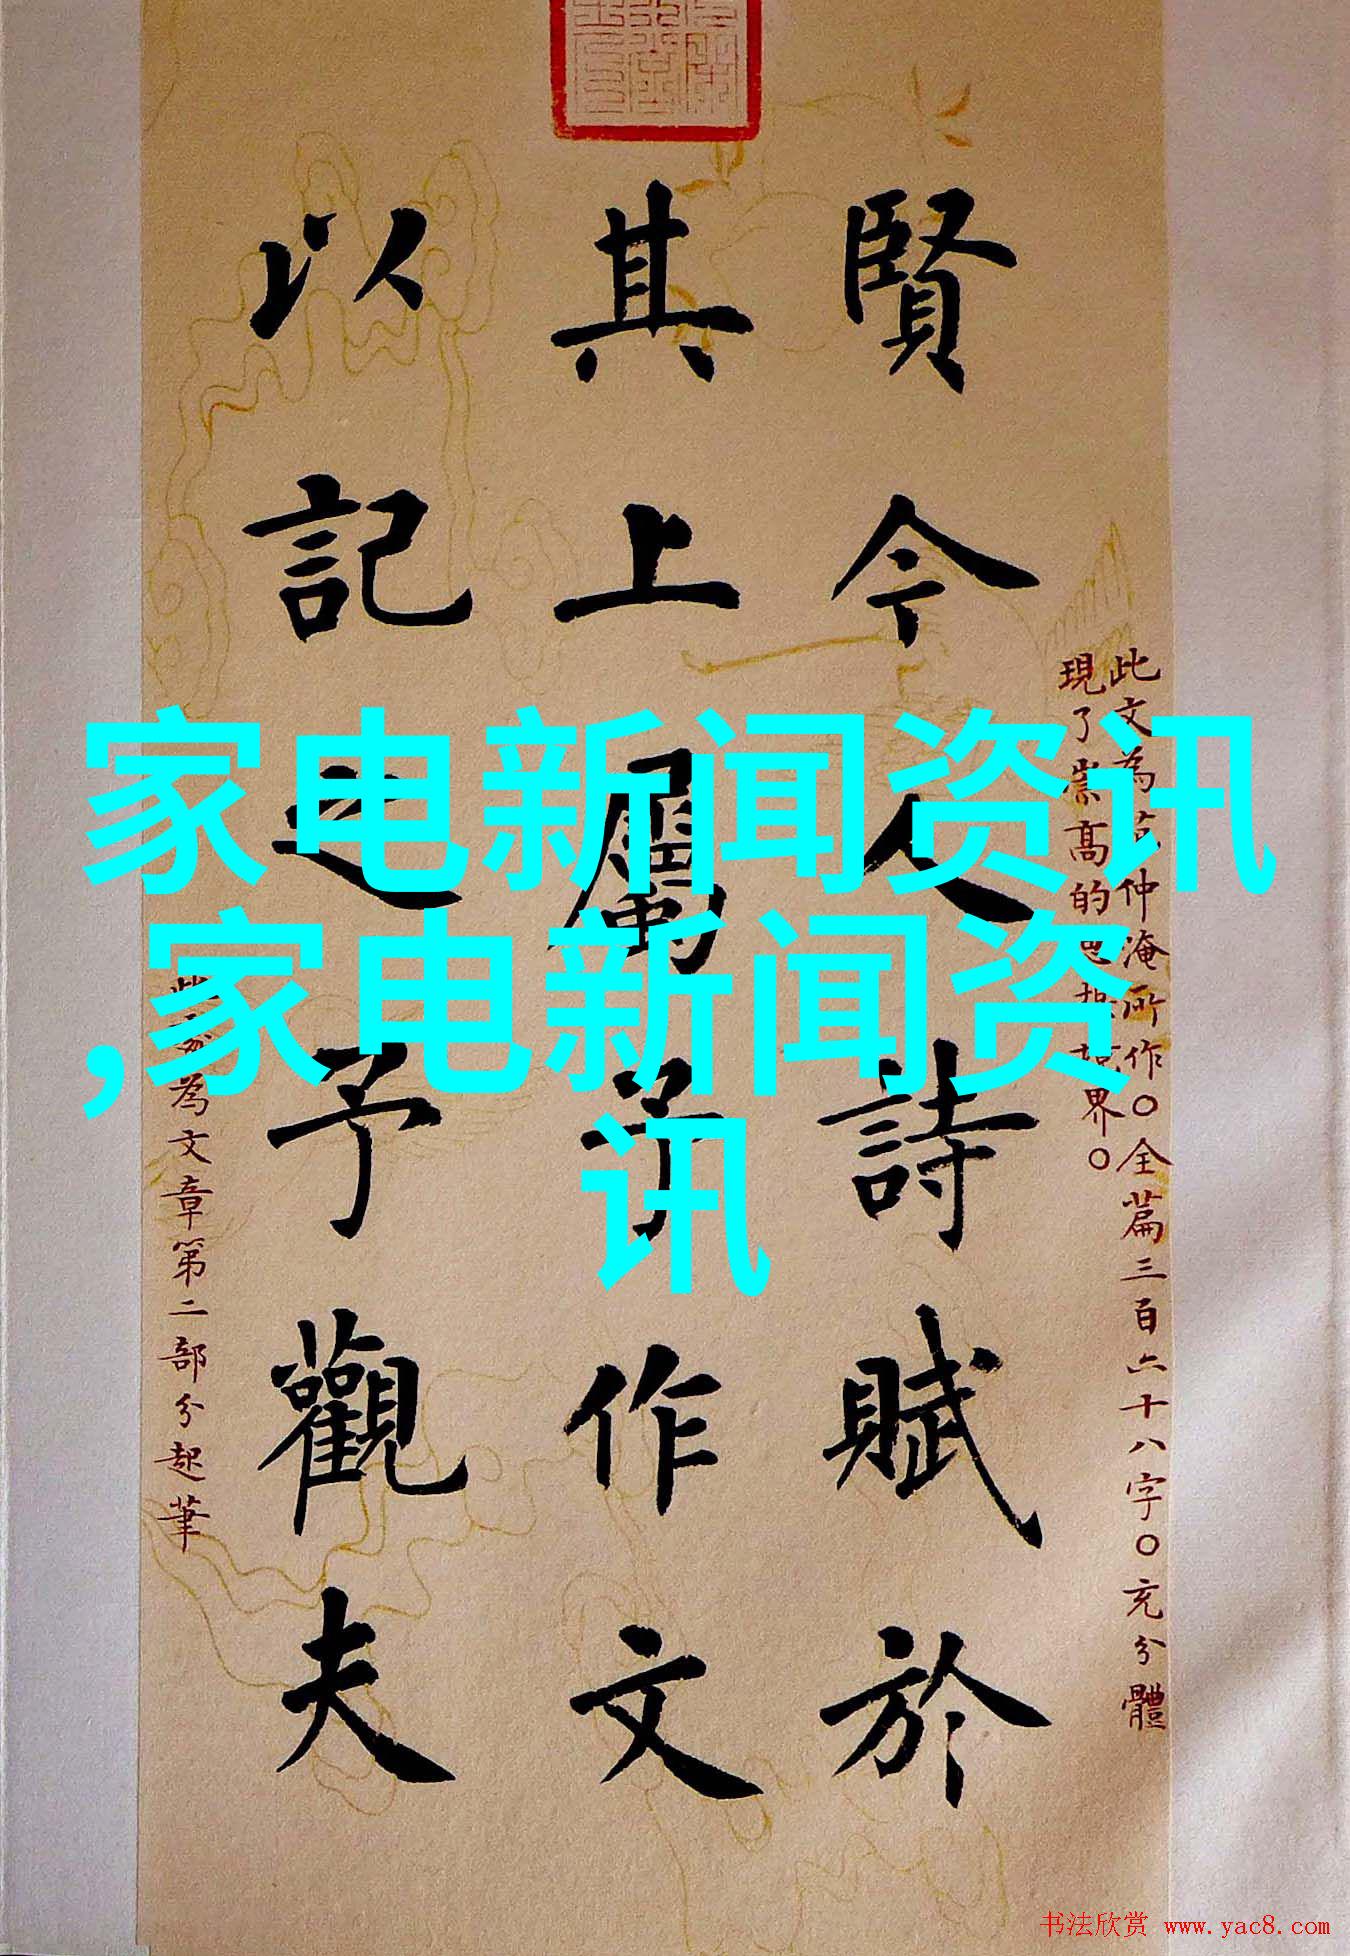 家电新闻资讯
,家电新闻资
讯
賢今人詩賦於
其上屬予作文
以記之予觀夫
此文為范仲淹所作○全篇三百六十八字○充分體
現了崇高的思想境界○
為文章第二部分起筆
书法欣赏 www.yac8.com